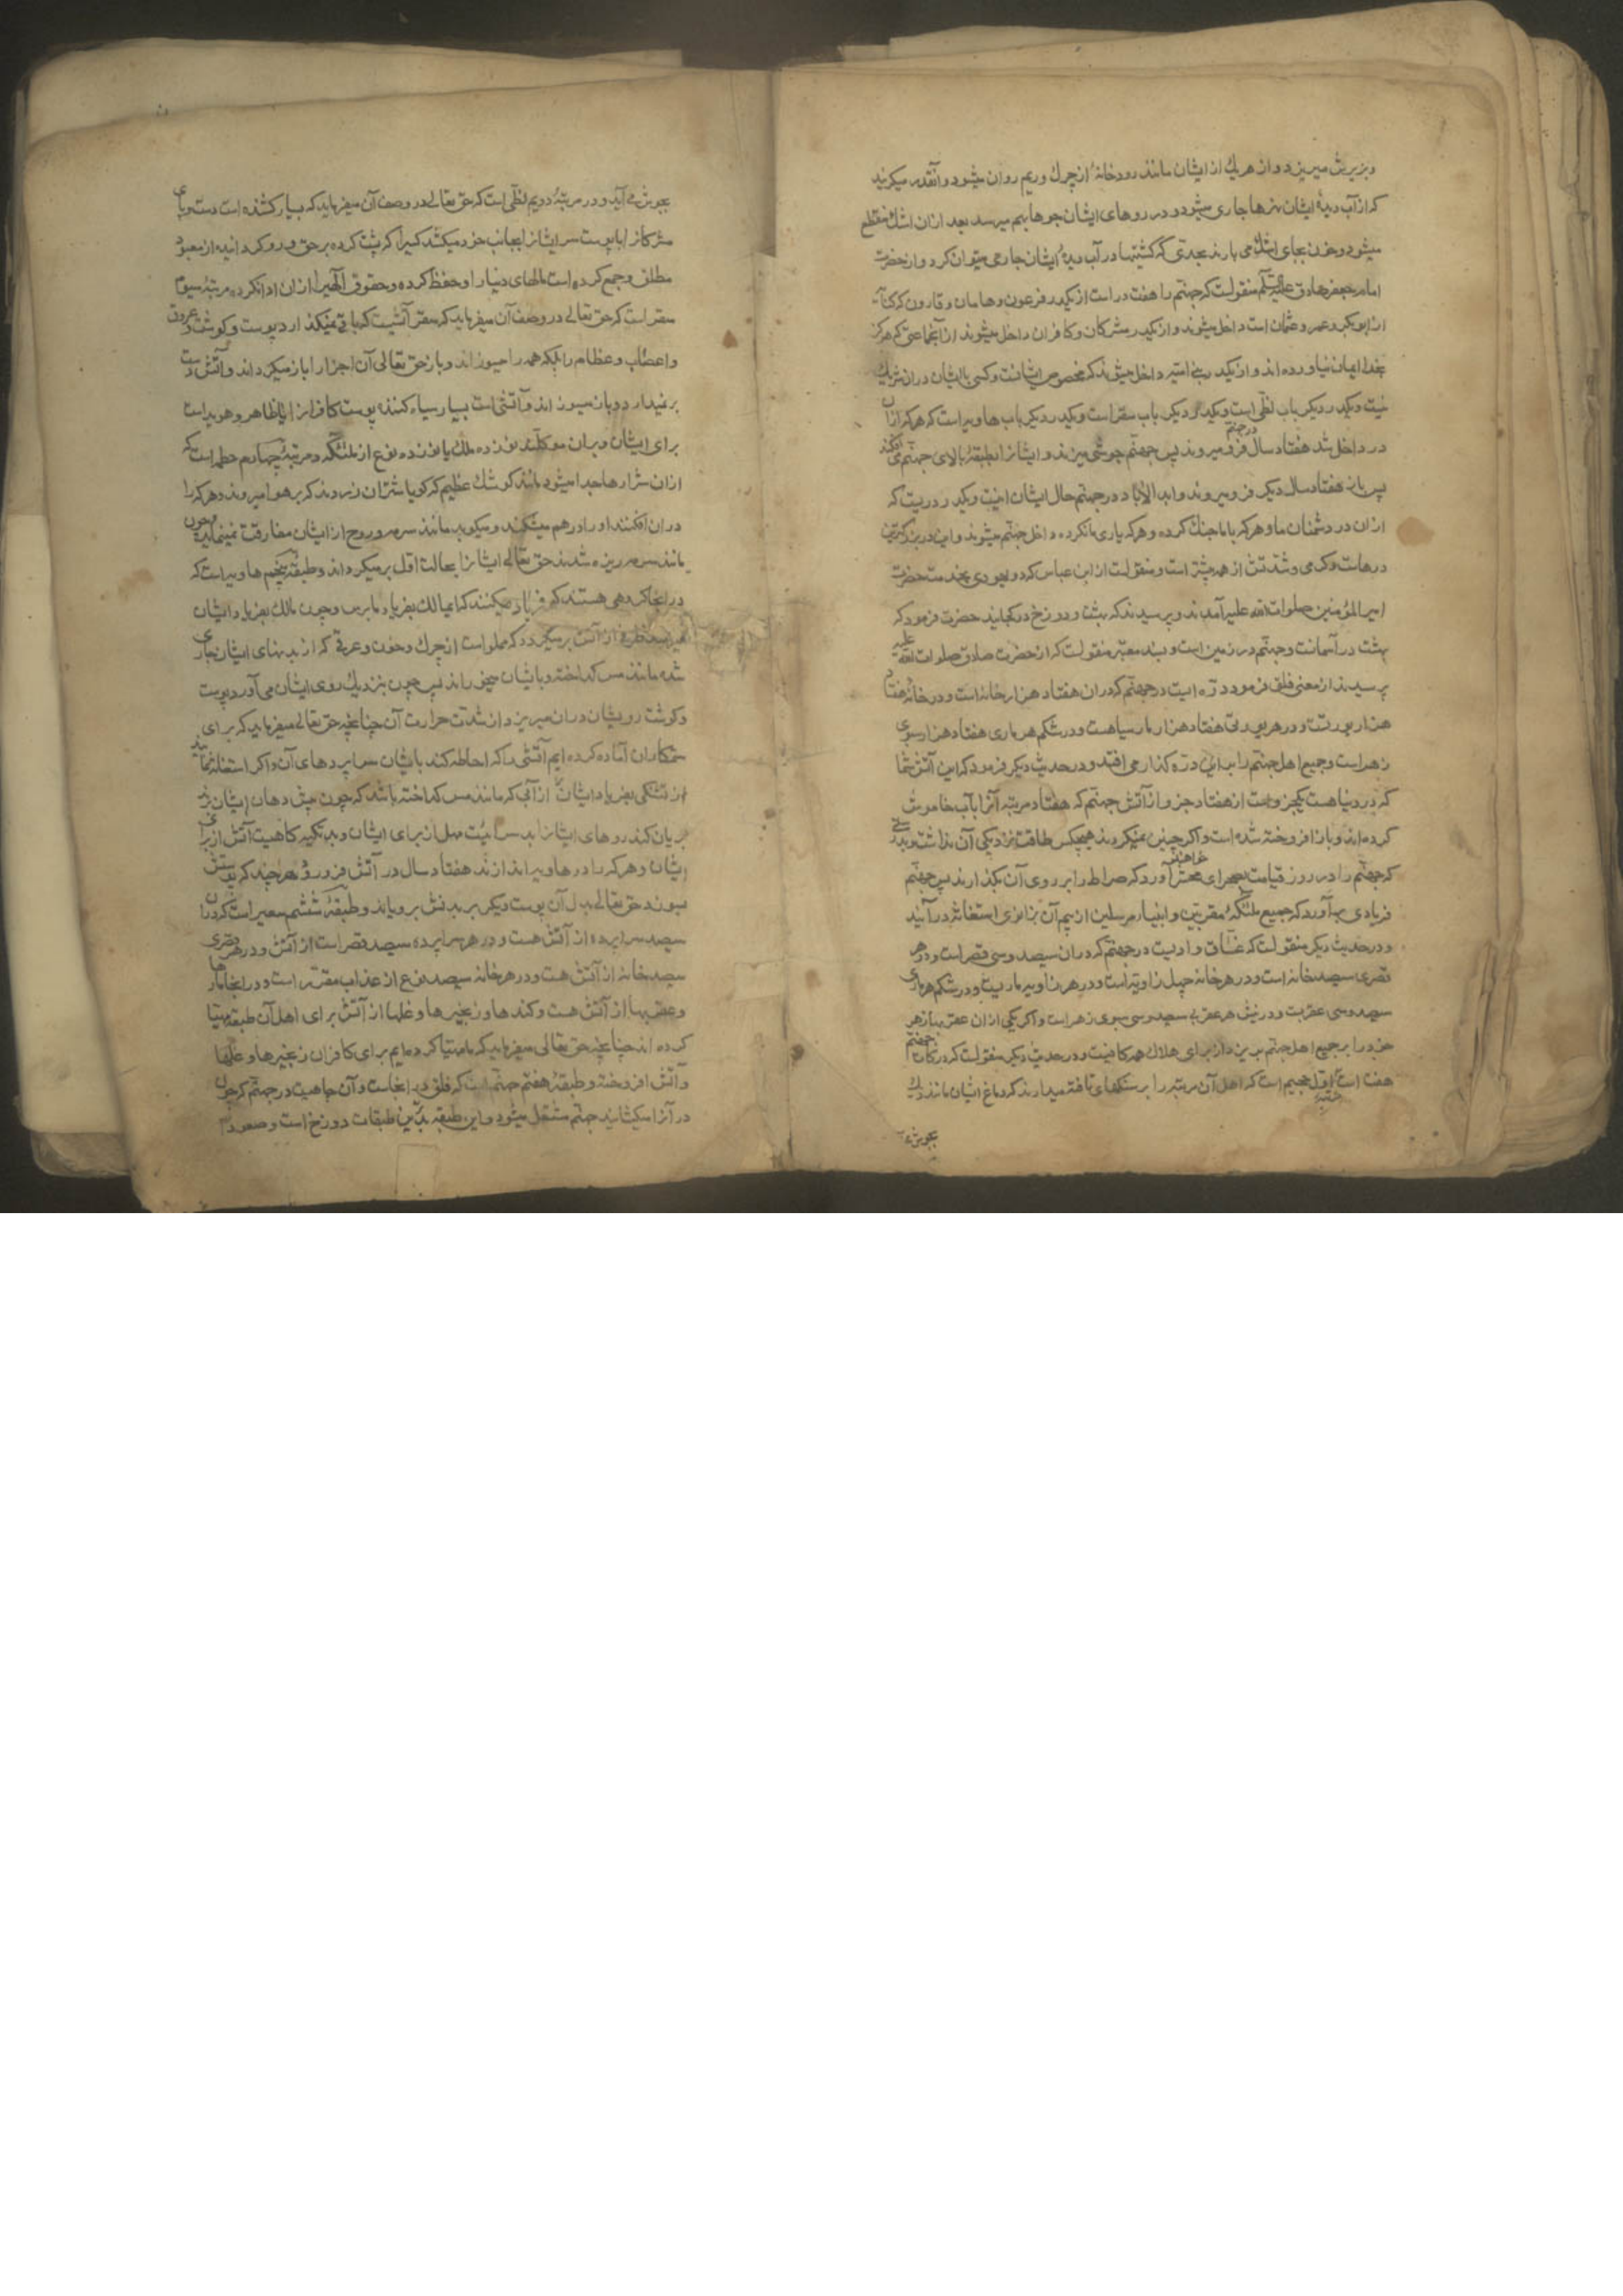 و بزیرش میریزد و از هریك از ایشان مانند رودخانهٔ از چرك و ریم روان میشود و آنقدر میکریند
که از آب دیدهٔ ایشان نهرها جاری میشود و در روهای ایشان جوها بهم میرسد بعد ازان اشك منقطع
میشود و خون بجای اشك می بارند بحدی که کشتیها در آب دیدهٔ ایشان جاری میتوان کرد و از حضرت
امام جعفر صادق علیه السلم منقولست که جهنم را هفت در است از یکدر فرعون و هامان و قارون که کنایه
از ابوبکر و عمر و عثمان است داخل میشوند و از یکدر مشرکان و کافران داخل میشوند از آنجماعتی که هرکز
بخدا ایمان نیاورده اند و از یکدر بنی امیه داخل میشوند که مخصوص ایشانست و کسی با ایشان دران شریك
نیست و یکدر دیکر باب لظی است و یکدر دیکر باب سقر است و یکدر دیکر باب هاویه است که هرکه ازان
در داخل شد هفتاد سال در جهنم فرو میروند پس جهنم جوشی میزند و ایشانرا بطبقهٔ بالای جهنم می افکند
پس باز هفتاد سال دیکر فرو میروند و ابد الاباد در جهنم حال ایشان اینست و یکدر دریست که
ازان در دشمنان ما و هرکه با ما جنك کرده و هرکه یاری ما نکرده داخل جهنم میشوند و این در بزرکترین
درهاست و کرمی و شدتش از همه بیشتر است و منقولست از ابن عباس که دو یهودی بخدمت حضرت
امیر المؤمنین صلوات الله علیه آمدند و پرسیدند که بهشت و دوزخ در کجایند حضرت فرمود که
بهشت در آسمانست و جهنم در زمین است و بسند معتبر منقولست که از حضرت صادق صلوات الله علیه
پرسیدند از معنی فلق فرمود دره ایست در جهنم که دران هفتاد هزار خانه است و در هر خانهٔ هفتاد
هزار بیوتست و در هر بیوتی هفتاد هزار مار سیاهست و در شکم هر ماری هفتاد هزار سبوی
زهر است و جمیع اهل جهنم را باین دره کذار می افتد و در حدیث دیکر فرمود که این آتش شما
که در دنیا هست یکجزو است از هفتاد جزو از آتش جهنم که هفتاد مرتبه آنرا بآب خاموش
کرده اند و باز افروخته شده است و اکر چنین نمیکردند هیچکس طاقت نزدیکی آن نداشت و بدرستی
که جهنم را در روز قیامت بصحرای محشر خواهند آورد که صراط را بر روی آن بکذارند پس جهنم
فریادی برآورد که جمیع ملئکهٔ مقربین و انبیاء مرسلین از بیم آن بزانوی استغاثه درآیند
و در حدیث دیکر منقولست که غساق وادیست در جهنم که دران سیصد و سی قصر است و در هر
قصری سیصد خانه است و در هر خانه چهل زاویه است و در هر زاویه ماریست و در شکم هر ماری
سیصد و سی عقربست و در نیش هر عقربی سیصد و سی سبوی زهر است و اکر یکی ازان عقربها زهر
خود را بر جمیع اهل جهنم بریزد از برای هلاك همه کافیست و در حدیث دیکر منقولست که درکات جهنم
هفت است مرتبه اول جحیم است که اهل آن مرتبه را بر سنکهای تافته میدارند که دماغ ایشان مانند دیك
بجوش می
بجوش می آید و در مرتبهٔ دویم لظی است که حق تعالی در وصف آن میفرماید که بسیار کشنده است دست و پای
مشرکانرا با پوست سر ایشانرا بجانب خود میکشد کسیرا که پشت کرده بر حق و رو کردانیده از معبود
مطلق و جمع کرده است مالهای دنیا را و حفظ کرده و حقوق الهیرا ازان ادا نکرده مرتبهٔ سیوم
سقر است که حق تعالی در وصف آن میفرماید که سقر آتشیست که باقی نمیکذارد پوست و کوشت و عروق
و اعصاب و عظام را بلکه همه را میسوزاند و باز حق تعالی آن اجزا را باز میکرداند و آتش دست
بر نمیدارد و باز میسوزاند و آتشی است بسیار سیاه کننده پوست کافرانرا یا ظاهر و هویداست
برای ایشان و بران موکلند نوزده ملك یا نوزده نوع از ملئکه و مرتبهٔ چهارم حطمه است که
ازان شرارها جدا میشود مانند کوشك عظیم که کویا شتران زردند که بر هوا میروند و هرکه را
دران افکنند او را درهم میشکند و میکوبد مانند سرمه و روح از ایشان مفارقت نمینماید و چون
مانند سرمه ریزه شدند حق تعالی ایشانرا بحالت اول برمیکرداند و طبقهٔ پنجم هاویه است که
در انجا کروهی هستند که فریاد میکنند که ای مالك بفریاد ما برس و چون مالك بفریاد ایشان
میرسد ظرفی از آتش برمیکیرد که مملو است از چرك و خون و عرقی که از بدنهای ایشان جاری
شده مانند مس کداخته و بایشان میخوراند پس چون بنزدیك روی ایشان می آورد پوست
و کوشت رویشان دران میریزد از شدت حرارت آن چنانچه حق تعالی میفرماید که برای
ستمکاران آماده کرده ایم آتشی را که احاطه کند بایشان سراپردهای آن و اکر استغاثه نمایند
از تشنکی بفریاد ایشان رسند از آبی که مانند مس کداخته باشد که چون پیش دهان ایشان برند
بریان کند روهای ایشانرا بد شرابیست مهل از برای ایشان و بد تکیه کاهیست آتش از برای
ایشان و هرکه را در هاویه اندازند هفتاد سال در آتش فرو رود و هرچند که پوستش
بسوزد حق تعالی بدل آن پوست دیکر بر بدنش برویاند و طبقهٔ ششم سعیر است که دران
سیصد سراپرده از آتش هست و در هر سراپرده سیصد قصر است از آتش و در هر قصری
سیصد خانه از آتش هست و در هر خانه سیصد نوع از عذاب مقرر است و در انجا مارها
و عقربها از آتش هست و کندها و زنجیرها و غلها از آتش برای اهل آن طبقه مهیا
کرده اند چنانچه حق تعالی میفرماید که ما مهیا کرده ایم برای کافران زنجیرها و غلها
و آتش افروخته و طبقهٔ هفتم جهنم است که فلق در انجاست و آن چاهیست در جهنم که چون
در آنرا میکشایند جهنم مشتعل میشود و این طبقه بدترین طبقات دوزخ است و صعود